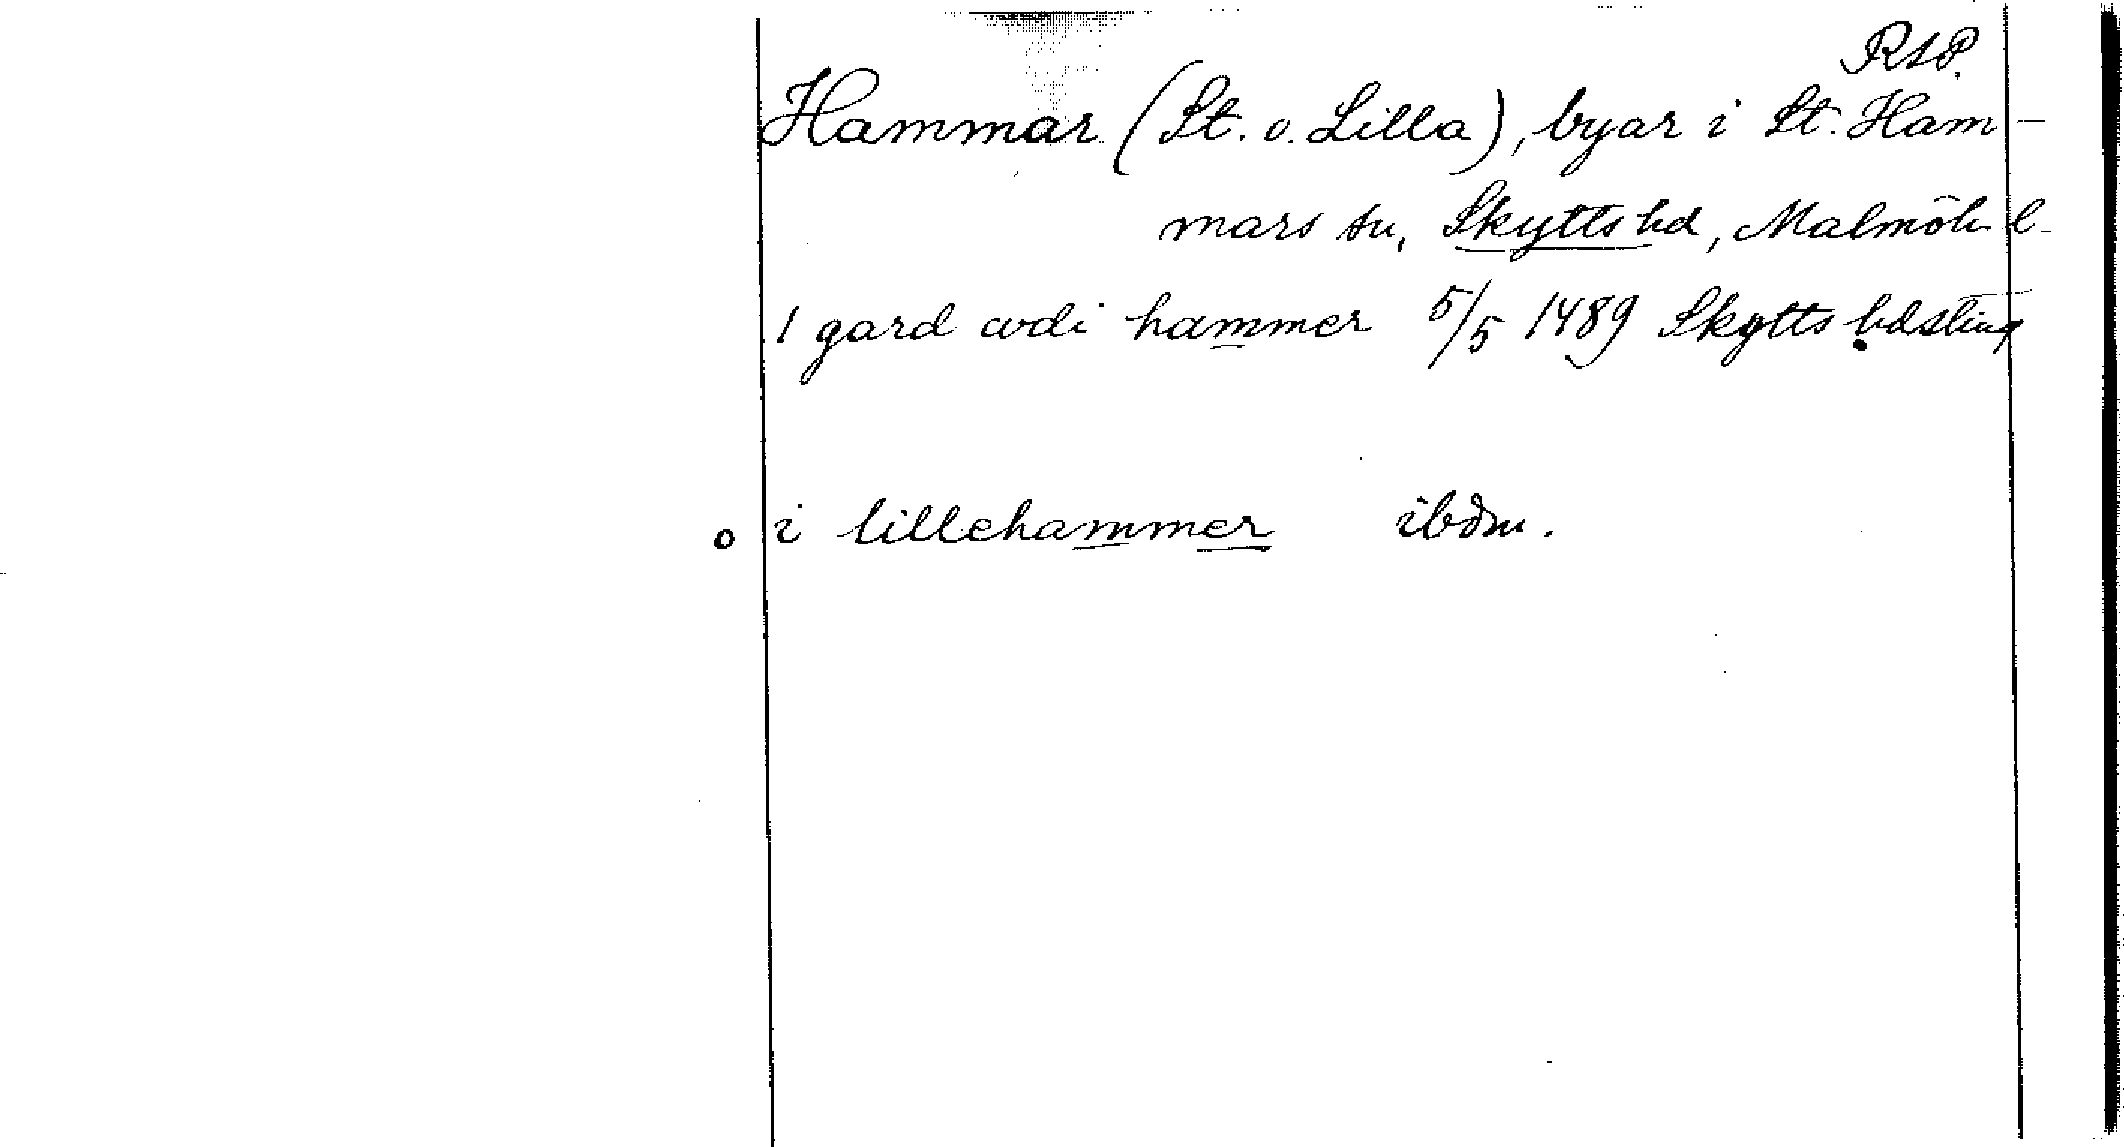 RAP.
Hammar (St. o. Lilla), byar i St. Ham-
mars sn, Skytts hd, Malmöh. l.
1 gard vdi hammer 5/5 1489 Skytts hdsting
i lillehammer ibdm.